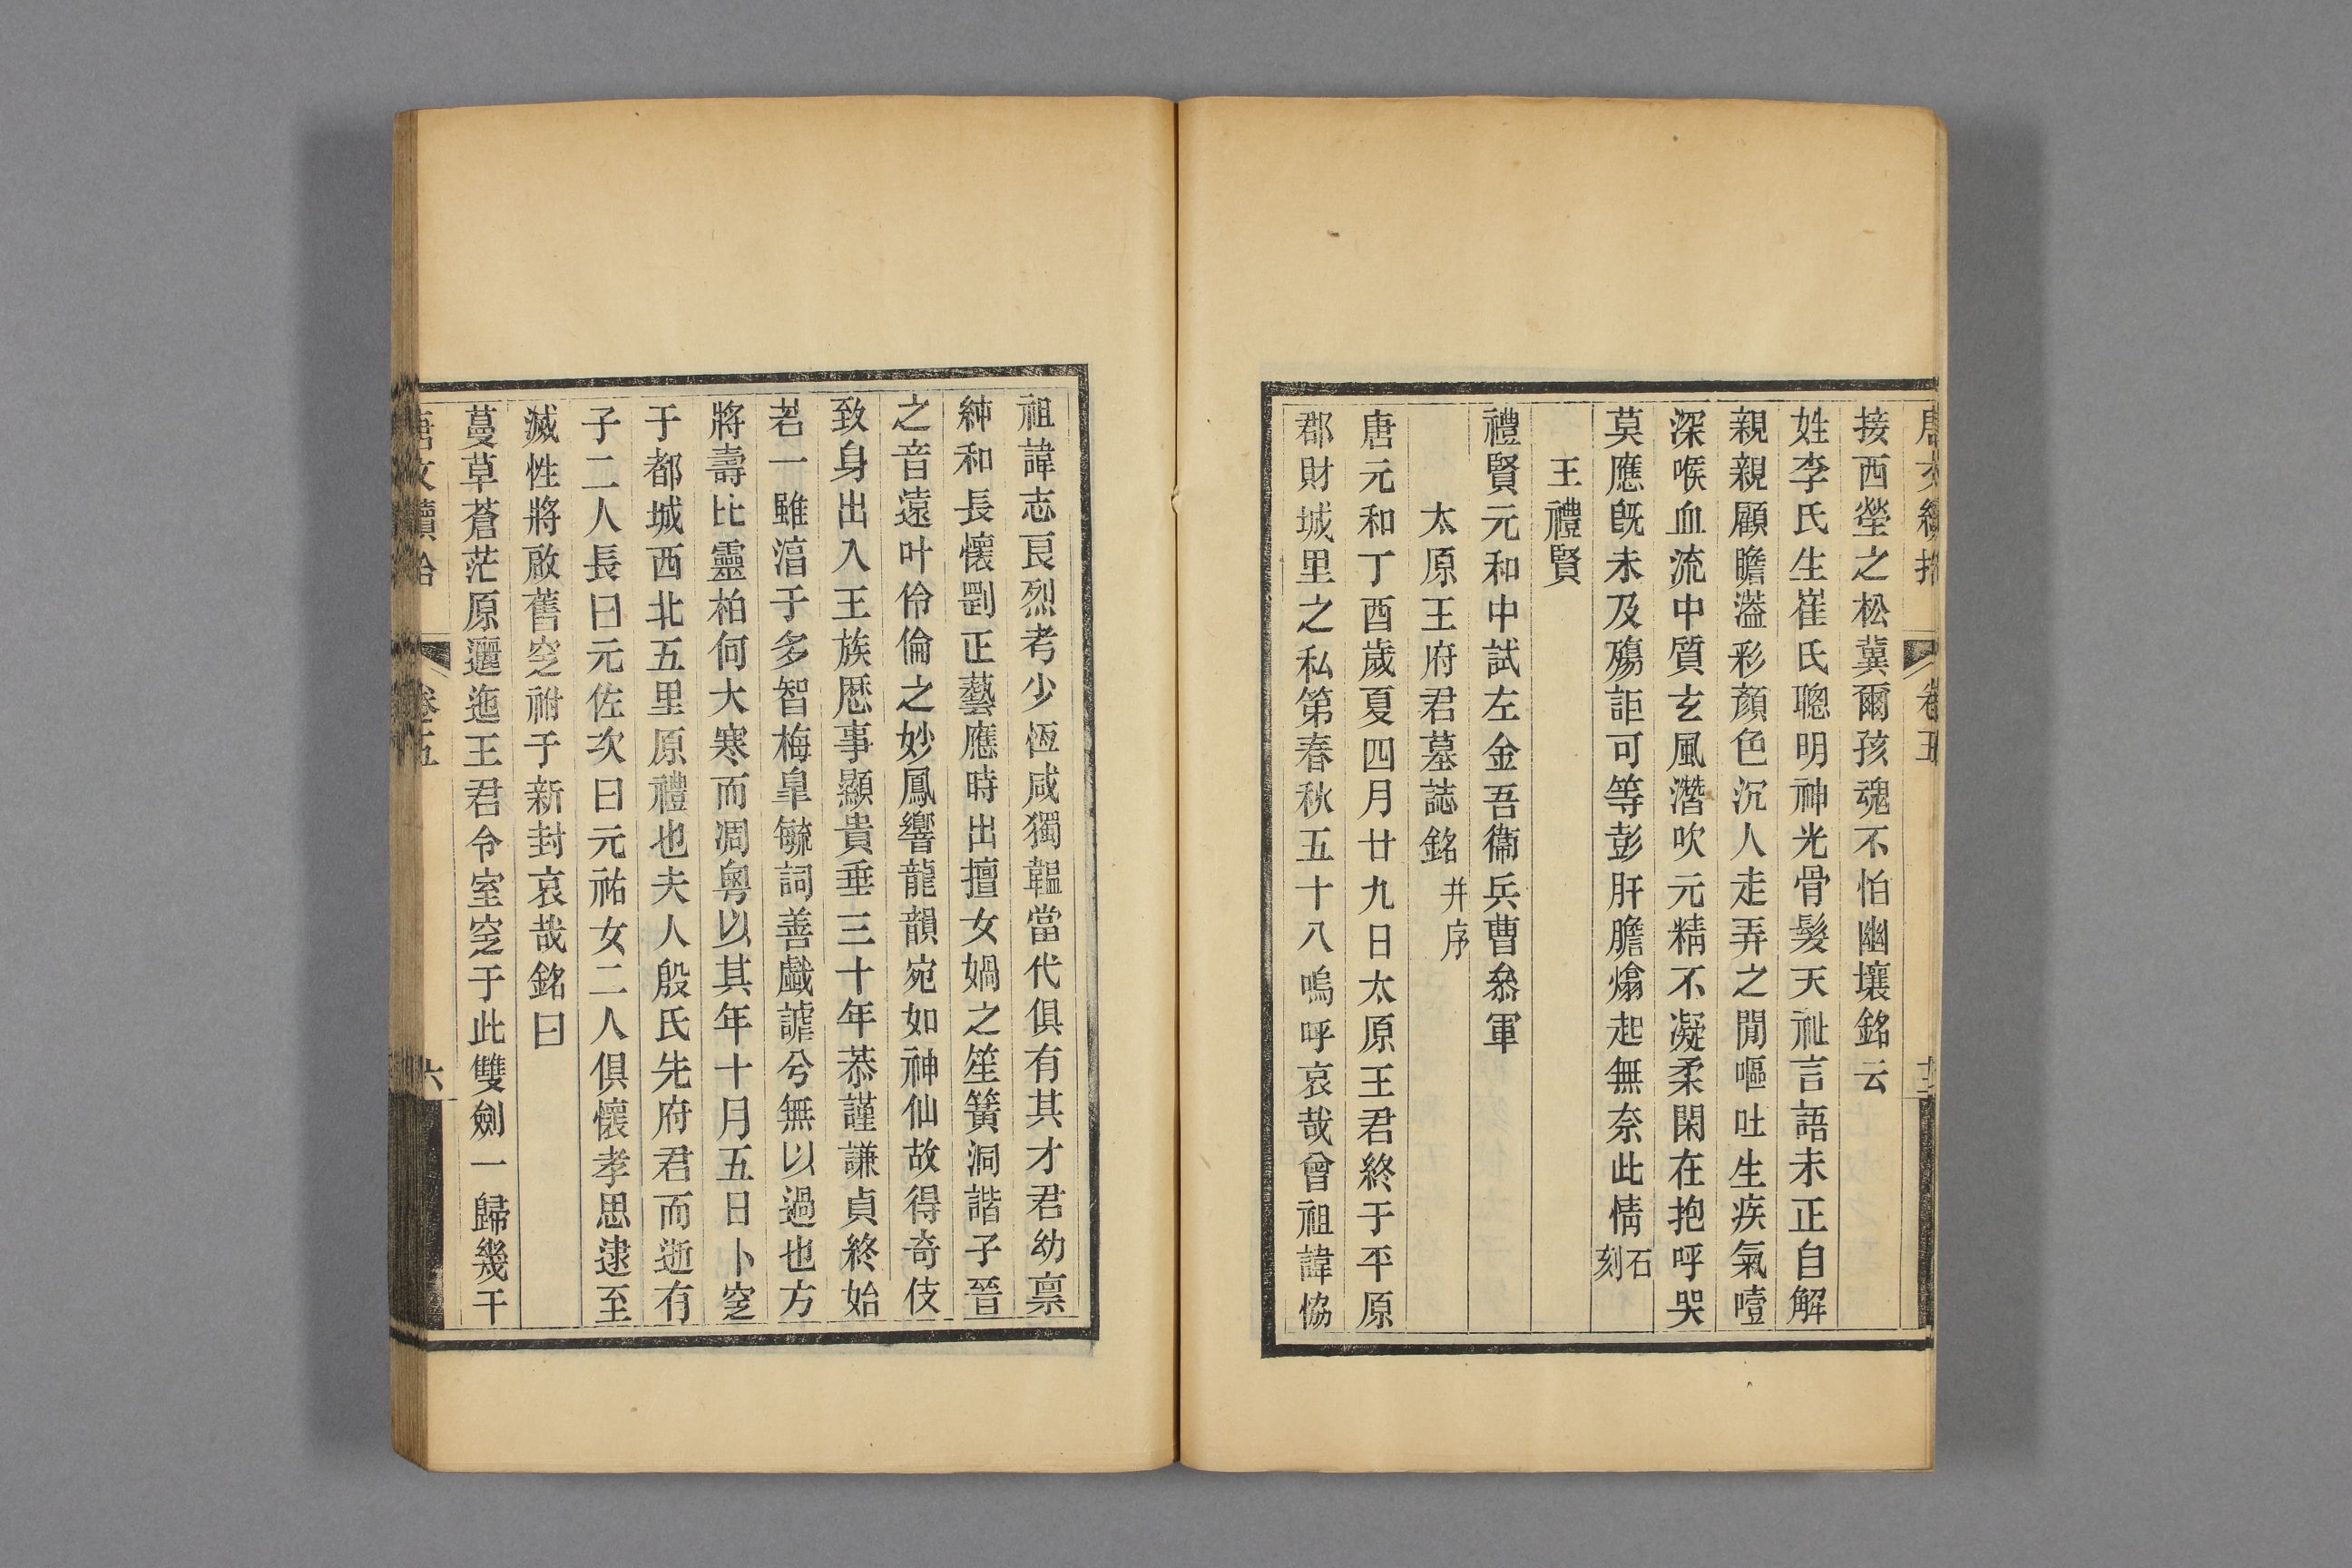 接西塋之松冀爾孩魂不怕幽壤銘云
姓李氏生崔氏聰明神光骨髮天祉言語未正自解
親親顧瞻溢彩顏色沉人走弄之閒嘔吐生疾氣噎
深喉血流中質玄風潛吹元精不凝柔閑在抱呼哭
莫應旣未及殤詎可等彭肝膽熻起無奈此情石刻
王禮賢
禮賢元和中試左金吾衞兵曹叅軍
太原王府君墓誌銘并序
唐元和丁酉歲夏四月廿九日太原王君終于平原
郡財城里之私第春秋五十八嗚呼哀哉曾祖諱恊
祖諱志良烈考少恆咸獨韞當代俱有其才君幼禀
純和長懷剛正藝應時出擅女媧之笙簧洞諧子晉
之音遠叶伶倫之妙鳳響龍韻宛如神仙故得奇伎
致身出入王族厯事顯貴垂三十年恭謹謙貞終始
若一雖湻于多智梅皐毓詞善戱謔兮無以過也方
將壽比靈柏何大寒而凋粵以其年十月五日卜窆
于都城西北五里原禮也夫人殷氏先府君而逝有
子二人長曰元佐次曰元祐女二人俱懷孝思逮至
滅性將啟舊窆祔于新封哀哉銘曰
蔓草蒼茫原邐迤王君令室窆于此雙劍一歸幾千
唐文續拾
卷五
六